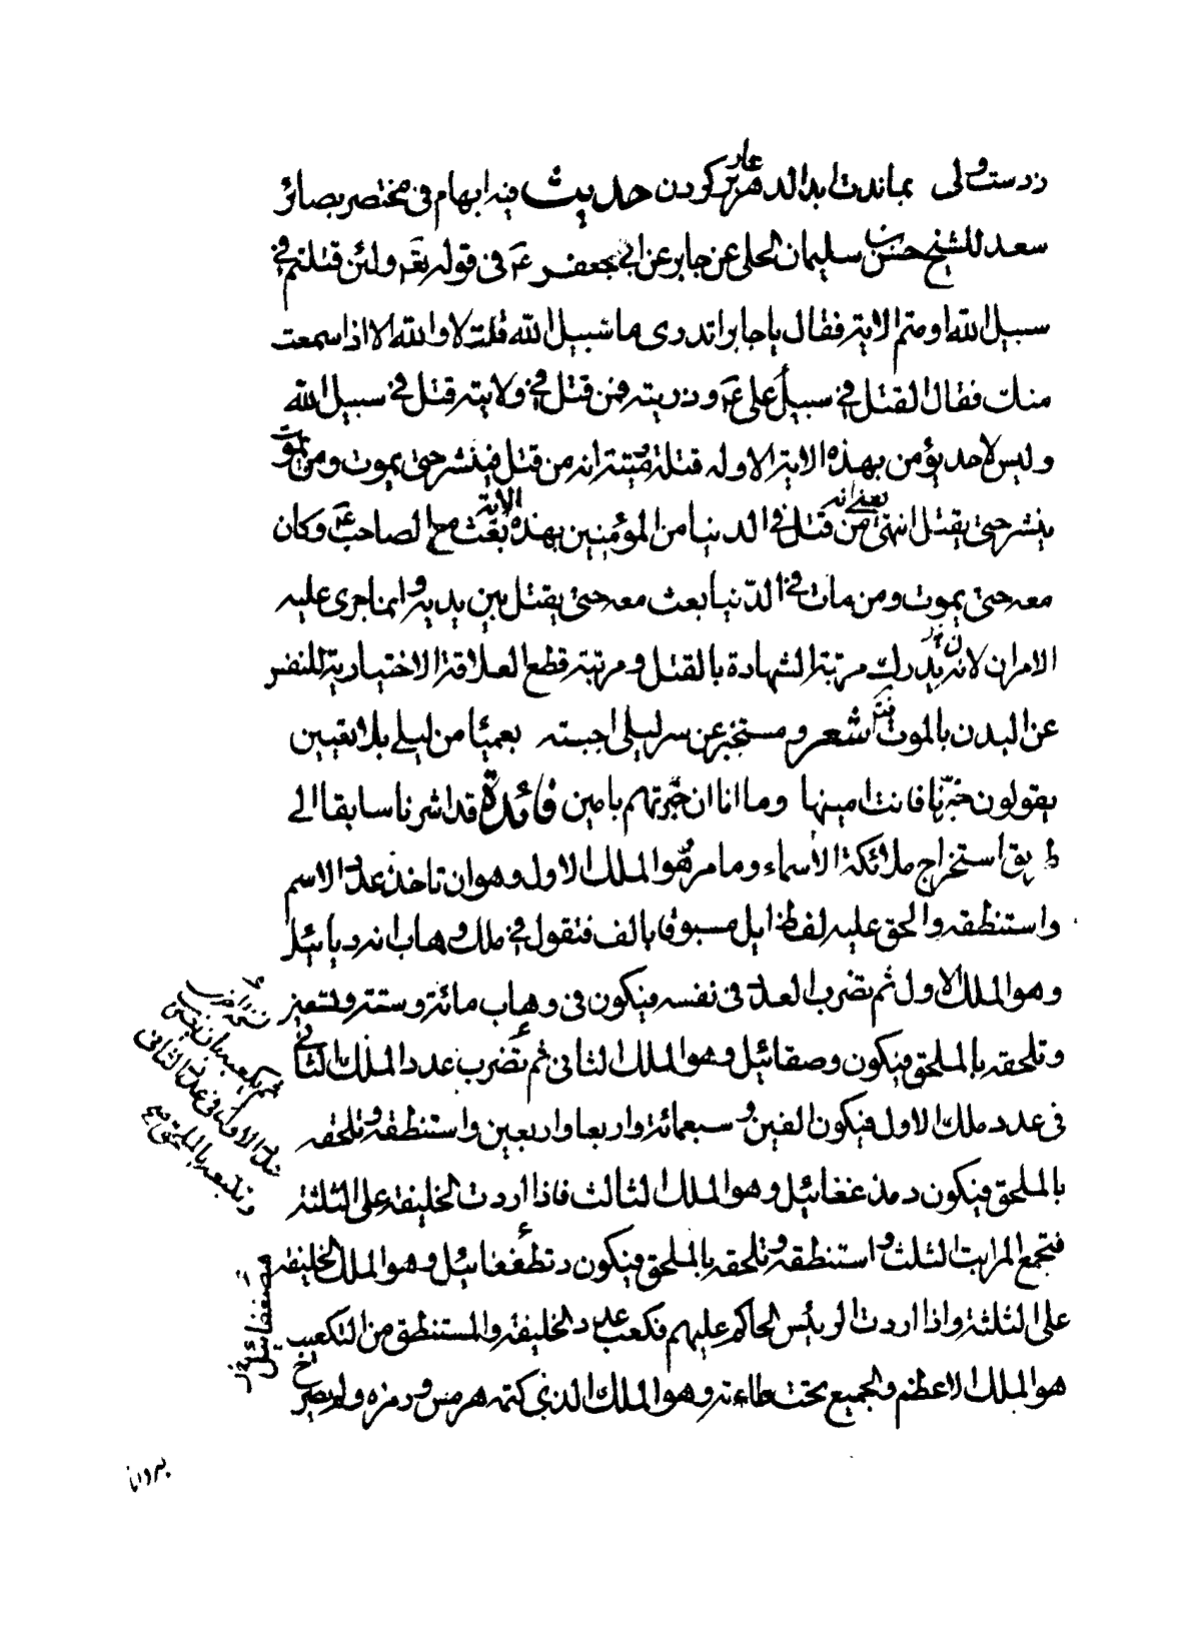 زدست ولی بماندت ابد الدهر عار بزکودن حدیث فیه ابهام فی مختصر بصائر
سعد للشیخ حسن بن سلیمان الحلی عن جابر عن ابی جعفر ع فی قوله تع ولئن قتلتم فی
سبیل الله او متم الایة فقال یا جابر اتدری ما سبیل الله قلت لا والله الا اذا سمعت
منك فقال القتل فی سبیل علی ع و ذریته فمن قتل فی ولایته قتل فی سبیل الله
ولیس لاحد یؤمن بهذه الایة الا وله قتلة و میتة انه من قتل فینشر حتی یموت ومن یموت
ینشر حتی یقتل انتهی یعنی انه من قتل فی الدنیا من المؤمنین بهذه الایة بعث مع الصاحب ع وکان
معه حتی یموت ومن مات فی الدنیا بعث معه حتی یقتل بین یدیه وانما جری علیه
الامران لانه یدرك مرتبة الشهادة بالقتل و مرتبة قطع العلاقة الاختیاریة للنفس
عن البدن بالموت شعر ومستخبر عن سر لیلی اجبته بعمیا من لیلی بلا یقین
یقولون خبرنا فانت امینها وما انا ان خبرتهم بامین فائدة قد اشرنا سابقا الی
طریق استخراج ملائکة الاسماء وما مر هو الملك الاول وهو ان تاخذ عدد الاسم
واستنطقه والحق علیه لفظ ایل مسبوق بالف فتقول فی ملك وهاب انه دیائیل
وهو الملك الاول ثم تضرب العدد فی نفسه فیکون فی وهاب مائة وستة وتسعین
وتلحقه بالملحق فیکون وصقائیل وهو الملك الثانی ثم تضرب عدد الملك الثانی
فی عدد ملك الاول فیکون الفین و سبعمائة واربعا واربعین واستنطقه وتلحقه
بالملحق فیکون دمذغغائیل وهو الملك الثالث فاذا اردت الخلیفة علی الثلثة
فتجمع المراتب الثلث واستنطقه وتلحقه بالملحق فیکون دنظغغائیل وهو الملك الخلیفة
علی الثلثة واذا اردت الرئیس الحاکم علیهم فکعب عدد الخلیفة والمستنطق من التکعیب
هو الملك الاعظم والجمیع تحت طاعته وهو الملك الذی کتمه هرمس و رمزه ولم یصرح